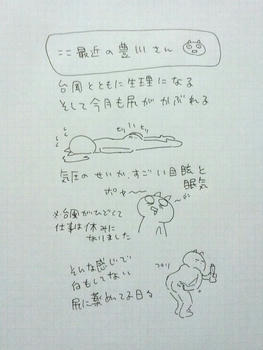 ここ最近の豊川さん
台風とともに生理になる
そして今月も尻がかぶれる
気圧のせいか、すごい目眩と
眠気
ポヤ〜
※台風がひどくて
仕事は休みに
なりました
そんな感じで
何もしてない
尻に薬ぬってる日々